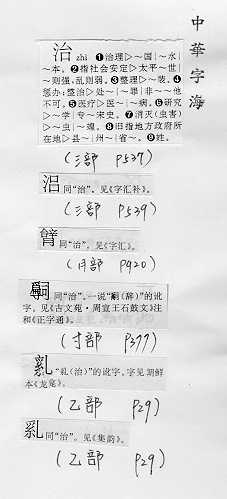 中華字海
治 zhì ❶治理▷～国｜～水
～本。❷指社会安定▷太平～世
～则强,乱则弱。❸整理▷～装。❹
惩办;整治▷处～｜～罪｜非～～他
不可。❺医疗▷医～｜～病。❻研究
▷～学｜专～宋史。❼消灭(虫害)
▷～虫｜～蝗。❽旧指地方政府所
在地▷县～｜州～｜省～。❾姓。
(氵部 P537)
同“治”。见《字汇补》。
(氵部 P539)
同“治”。见《字汇》。
(月部 P920)
同“治”。一说“嗣(辞)”的讹
字。见《古文苑·周宣王石鼓文》注
和《正字通》。
(寸部 P377)
“乿(治)”的讹字。字见朝鲜
本《龙龛》。
(乙部 P29)
乿同“治”。见《集韵》。
(乙部 P29)